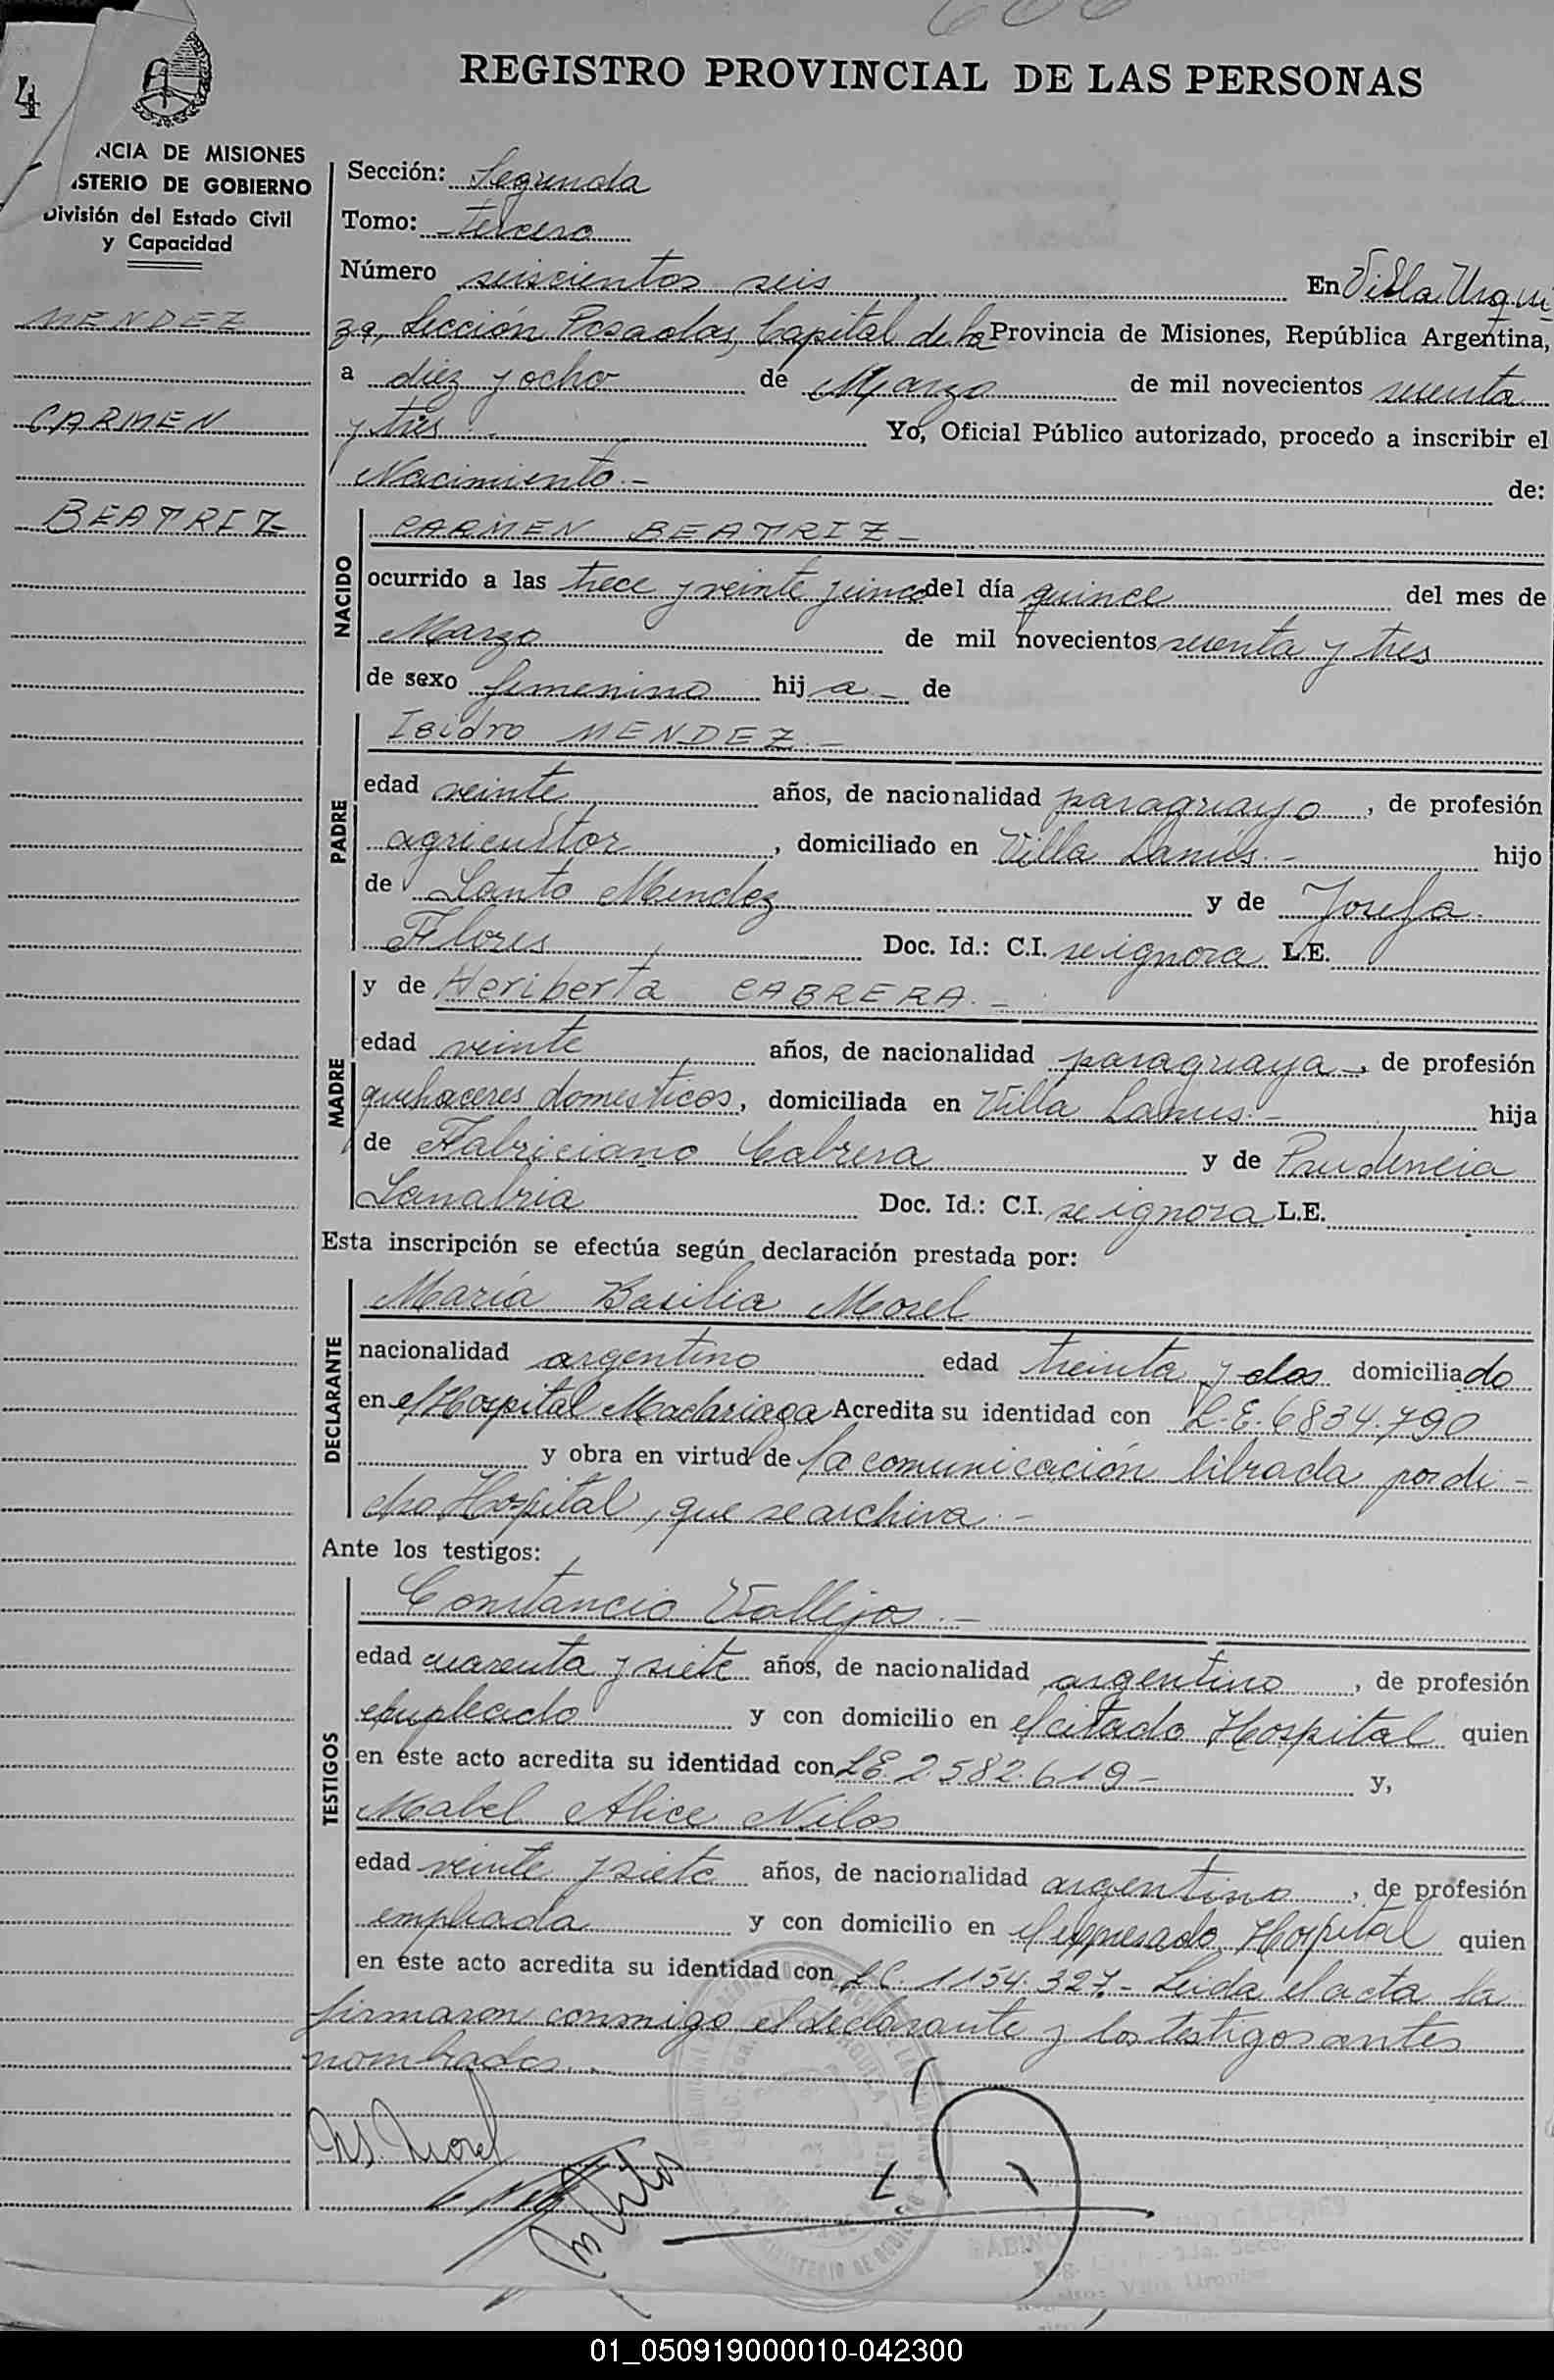 606
REGISTRO PROVINCIAL DE LAS PERSONAS
4
NCIA DE MISIONES
ISTERIO DE GOBIERNO
División del Estado Civil
y Capacidad
MENDEZ
CARMEN
BEATRIZ
Sección: Segunda
Tomo: tercero
Número seiscientos seis En Villa Urqui
za, Sección Posadas, Capital de la Provincia de Misiones, República Argentina,
a diez y ocho de Marzo de mil novecientos sesenta
y tres Yo, Oficial Público autorizado, procedo a inscribir el
Nacimiento.- de:
NACIDO
CARMEN BEATRIZ-
ocurrido a las trece y veinte y cinco del día quince del mes de
Marzo de mil novecientos sesenta y tres
de sexo femenino hij a- de
PADRE
Isidro MENDEZ.-
edad veinte años, de nacionalidad paraguayo, de profesión
agricultor, domiciliado en Villa Lanús.- hijo
de Santo Mendez y de Josefa
Flores Doc. Id.: C.I. se ignora L.E.
MADRE
y de Heriberta CABRERA.-
edad veinte años, de nacionalidad paraguaya-, de profesión
quehaceres domesticos, domiciliada en Villa Lanus.- hija
de Fabriciano Cabrera y de Prudencia
Sanabria Doc. Id.: C.I. se ignora L.E.
Esta inscripción se efectúa según declaración prestada por:
DECLARANTE
María Basilia Morel
nacionalidad argentino edad treinta y dos domiciliado
en el Hospital Madariaga Acredita su identidad con L.E. 6834.790
y obra en virtud de la comunicación librada por di-
cho Hospital, que se archiva.-
Ante los testigos:
TESTIGOS
Constancio Vallejos.-
edad cuarenta y siete años, de nacionalidad argentino, de profesión
empleado y con domicilio en el citado Hospital quien
en este acto acredita su identidad con L.E. 2.582.619- y,
Mabel Alice Nilos
edad veinte y siete años, de nacionalidad argentino, de profesión
empleada y con domicilio en el expresado Hospital quien
en este acto acredita su identidad con L.C. 1154.327.- Leida el acta la
firmaron conmigo el declarante y los testigos antes
nombrados.
M. Morel
M Nilos
01_050919000010-042300